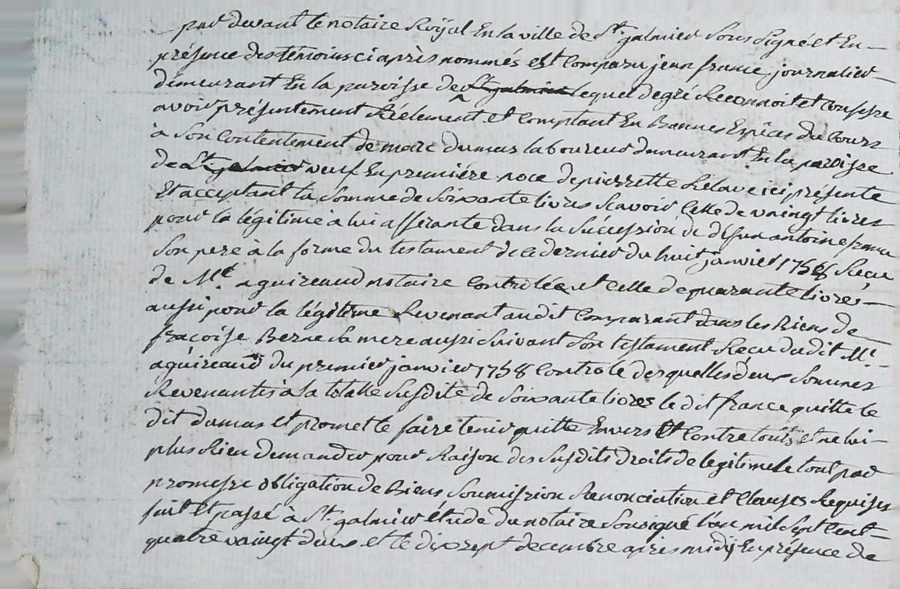 par devant le notaire Royal En la ville de St. galmier Sous Signé et En
présence des témoins ci après nommés est Comparu jean france journalier
démeurant En la paroisse de St galmier lequel de gré Reconnoit et confesse
avoir présentement Réélement et Comptant En Bonnes Espèces du Cours
à Son Contentement de marc dumas laboureur demeurant En la paroisse
de St galmier veuf En première noce de pierrette ici présente
Et acceptant la Somme de Soixante livres Scavoir Celle de vaingt livres
pour la légitime à lui afférante dans la Succession de défunt antoine france
Son pere à la forme du testament de ce dernier du huit janvier 1758 Recu
de Me. aguiraud notaire Controllée et Celle de quarante livres
aussi pour la légitime Revenant audit Comparant dans les Biens de
françoise Berne Sa mere aussi Suivant Son testament Recu du dit Me.
aguireaud du premier janvier 1758 Controlé desquelles deux Sommes
Revenantes à la totalle Susdite de Soixante livres le dit france quitte le
dit dumas et promet le faire tenir quitte Envers Et Contre touts et ne lui
plus Rien demander pour Raison des Susdits droits de legitime le tout par
promesse obligation de Biens Soumission Renonciation et Clauses Requises
fait Et passé à St. galmier etude du notaire Sousigné l'an mil Sept Cent
quatre vaingt deux et le dix sept decembre après midÿ En présence de